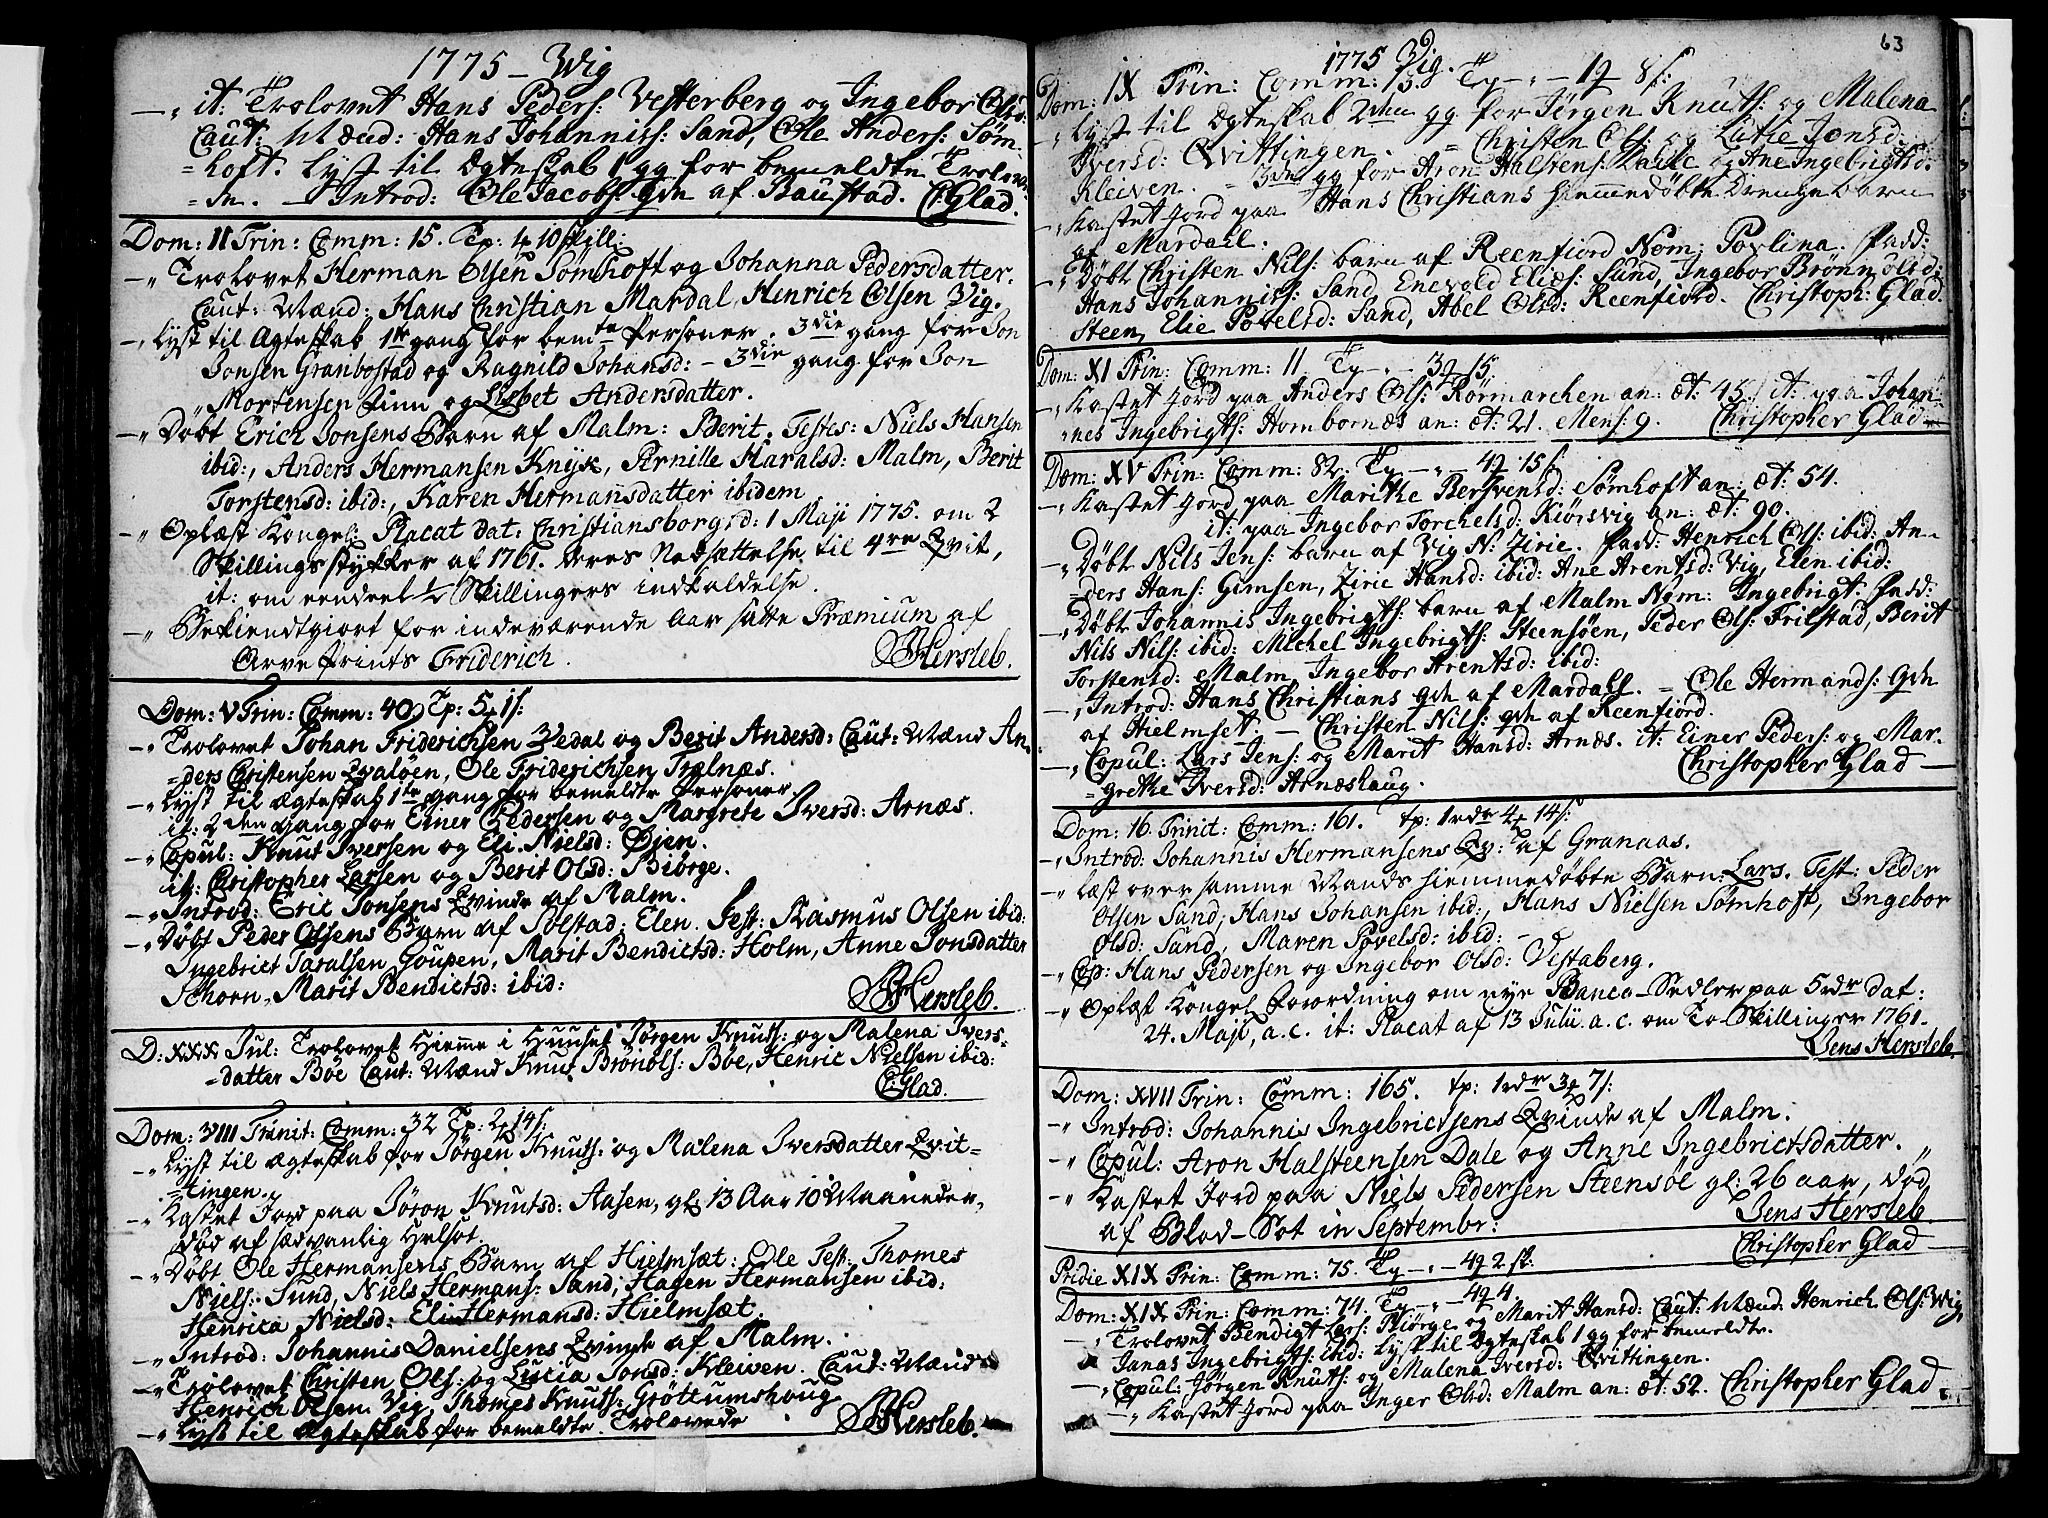 1775 - Wig
-„ it: Trolovet Hans Peders: Vesterberg og Ingebor Olsd:
Caut: Mænd: Hans Johanniss: Sand, Ole Anders: Søm-
=hoft. Lyst til Ægteskab 1 gg for bemeldte Trolov-
=de. - Introd: Ole Jacobs: qvn af Baustad. C: Glad.
Dom: II Trin: Comm: 15. Tp: 1 10 skill:
-„ Trolovet Herman Olsen Sømhoft og Johanna Pedersdatter.
Caut: Mænd: Hans Christian Mardal, Henrich Olsen Vig.
-„ Lyst til Ægteskab 1te gang for bemte Personer. 3die gang for Jon
Jonsen Granbostad og Ragnild Johansd: - 3die gang for Jon
Mortensen Finn og Lisbet Andersdatter.
-„ Døbt Erich Jonsens Barn af Malm: Berit. Testes: Niels Hansen
ibid:, Anders Hermansen Knyk, Pernille Haralsd: Malm, Berit
Torstensd: ibid:, Karen Hermansdatter ibidem
-„ Oplæst Kongel: Placat dat: Christiansborg d: 1 Maji 1775. om 2
Skillingsstykker af 1761. deres Nedsættelse til 4re Hvit,
it: om eendeel 1/2 Skillingers indkaldelse.
-„ Bekiendtgiort for indeværende Aar satte Præmium af
Arve Prints Friderich. JHersleb.
Dom: V Trin: Comm: 40 Tp: 5 1 s:
-„ Trolovet Johan Friderichsen Vedal og Berit Andersd: Caut: Mænd An-
=ders Christensen Hvaløen, Ole Friderichsen Trælnæs.
-„ Lyst til Ægteskab 1te gang for bemeldte Personer.
it: 2den gang for Einer Pedersen og Margrete Iversd: Arnæs.
-„ Copul: Knut Iversen og Eli Nielsd: Øien.
it: Christopher Larsen og Berit Olsd: Biørge.
-„ Introd: Eric Jonsens Qvinde af Malm.
-„ Døbt Peder Olsens Barn af Solstad: Elen. Test: Rasmus Olsen ibid:
Ingebrict Taralsen Goupen, Marit Bendictsd: Holm, Anne Jonsdatter
Schorn, Marit Bendictsd: ibid:
JHersleb.
D: XXX Jul: Trolovet Hiemme i Huuset Jørgen Knuts: og Malena Ivers-
=datter Bøe Caut: Mænd Knut Brønols: Bøe, Henric Nielsen ibid:
C: Glad.
Dom: VIII Trinit: Comm: 32 Tp: 2 14 s:
-„ Lyst til Ægteskab for Jørgen Knuts: og Malena Iversdatter Qvit-
=tingen.
-„ Kastet Jord paa Jøron Knutsd: Aasen, gl: 13 Aar 10 Maaneder,
død af sædvanlig Helsot.
-„ Døbt Ole Hermansens Barn af Hielmsæt: Ole Test: Thomes
Niels: Sund, Niels Hermans: Sand, Hagen Hermansen ibid:
Henrica Nielsd: Eli Hermansd: Hielmsæt.
-„ Introd: Johannis Danielsens Qvinde af Malm.
-„ Trolovet Christen Ols: og Lucia Jonsd: Klewen. Caut: Mænd
Henrich Olsen Vig, Thomes Knuts: Grottumshoug
-„ Lyst til Ægteskab for bemeldte Trolovede JHersleb.
63
1775 Vig.
Dom: IX Trin: Comm: 13. Tp - „ - 1 8 s:
-„ Lyst til Ægteskab 2den gg for Jørgen Knuts: og Malena
Iversd: Qvittingen. = Christen Ols: og Lucie Jonsd:
Kleiven. - 3die gg for Aron Halstens: og Ane Ingebrigtsd:
-„ Kastet Jord paa Hans Christians hiemmedøbte Drengebarn
af Mardall.
-„ Døbt Christen Nils: barn af Reenfiord Nom: Povlina. Fadd:
Hans Johanniss: Sand, Enevold Elies: Sund, Ingebor Brønnjølsd:
Steen, Elie Povelsd: Sand, Abel Olsd: Reenfiord. Christoph: Glad.
Dom: XI Trin: Comm: 11 Tp - „ - 3 15.
-„ Kastet Jord paa Anders Ols: Rørmarchen an: æt: 45. it: paa Johan-
nes Ingebrigts: Hombornæs an: æt: 21. Mens: 9. Christopher Glad
Dom: XV Trin: Comm: 82. Tp - „ - 4 15 s
-„ Kastet Jord paa Marithe Bersvensd: Sømhoft an: æt: 54.
it: paa Ingebor Torchelsd: Kiørsvig an: æt: 90.
-„ Døbt Nils Jens: barn af Vig N: Zirie. Fadd: Henrich Ols: ibid: An-
=ders Hans: Gimsen, Zirie Hansd: ibid: Ane Arentsd: Vig, Elen ibid:
-„ Døbt Johannis Ingebrigts: barn af Malm Nom: Ingebrigt. Fadd:
Nils Nils: ibid: Michel Ingebrigts: Steensøen, Peder Ols: Frilstad, Berit
Torstensd: Malm, Ingebor Arentsd: ibid:
-„ Introd: Hans Christians qvn af Mardall. - Ole Hermands: qvn
af Hielmset. - Christen Nils: qvn af Reenfiord.
-„ Copul: Lars Jens: og Marit Hansd: Arnæs. it: Einer Peders: og Mar-
=grethe Iversd: Arnæshaug. Christopher Glad
Dom: 16. Trinit: Comm: 161. Tp: 1 rdr 4 14 s:
-„ Introd: Johannis Hermansens Qv: af Granaas.
-„ Læst over samme Mands hiemmedøbte Barn: Lars. Test: Peder
Olsen Sand, Hans Johansen ibid:, Hans Nielsen Sømhoft, Ingebor
Olsd: Sund, Maren Povelsd: ibid:
-„ Cop: Hans Pedersen og Ingebor Olsd: Vestaberg.
-„ Oplæst Kongel Forordning om nye Banco-Sedler paa 5 rdr dat:
24. Maji, a.c. it: Placat af 13 Julii a.c. om To-Skillinger 1761.
Jens Hersleb
Dom: XVII Trin: Comm: 165. Tp: 1 rdr 3 7 s:
-„ Introd: Johannis Ingebrictsens Qvinde af Malm.
-„ Copul: Aron Halsteensen Dale og Anne Ingebrictsdatter.
-„ Kastet Jord paa Niels Pedersen Steensøl gl: 26 aar, død
af Blod-Sot in Septembr: Jens Hersleb
Pridie XIX Trin: Comm: 75. Tp - „ - 4 2 sk: Christopher Glad
Dom: XIX Trin: Comm: 74. Tp - „ - 4 4.
-„ Trolovet Bendigt Lars: Biørge og Marit Hansd: Caut: Mænd Henrich Ols: Wig,
Janas Ingebrigts: ibid: Lyst til Ægteskab 1 gg for bemeldte.
-„ Copul: Jørgen Knuts: og Malena Iversd: Qvittingen.
-„ Kastet Jord paa Inger Olsd: Malm an: æt: 52. Christopher Glad